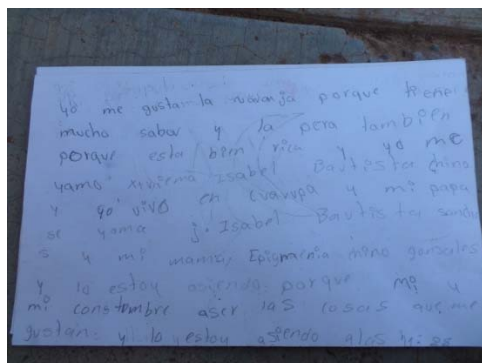 yo me gustar la naranja porque tiene
mucho sabor y la pera tambien
porque esta bien rica y yo me
yamo Isabel Bautista mino
y yo vivo en y mi papa
se yama j. Isabel Bautista sanche
s y mi mama, Epignacnia mino gonsales
y lo estoy asiendo porque mi y
mi constombre aser las cosas que me
gustan. y lo estoy asiendo alas